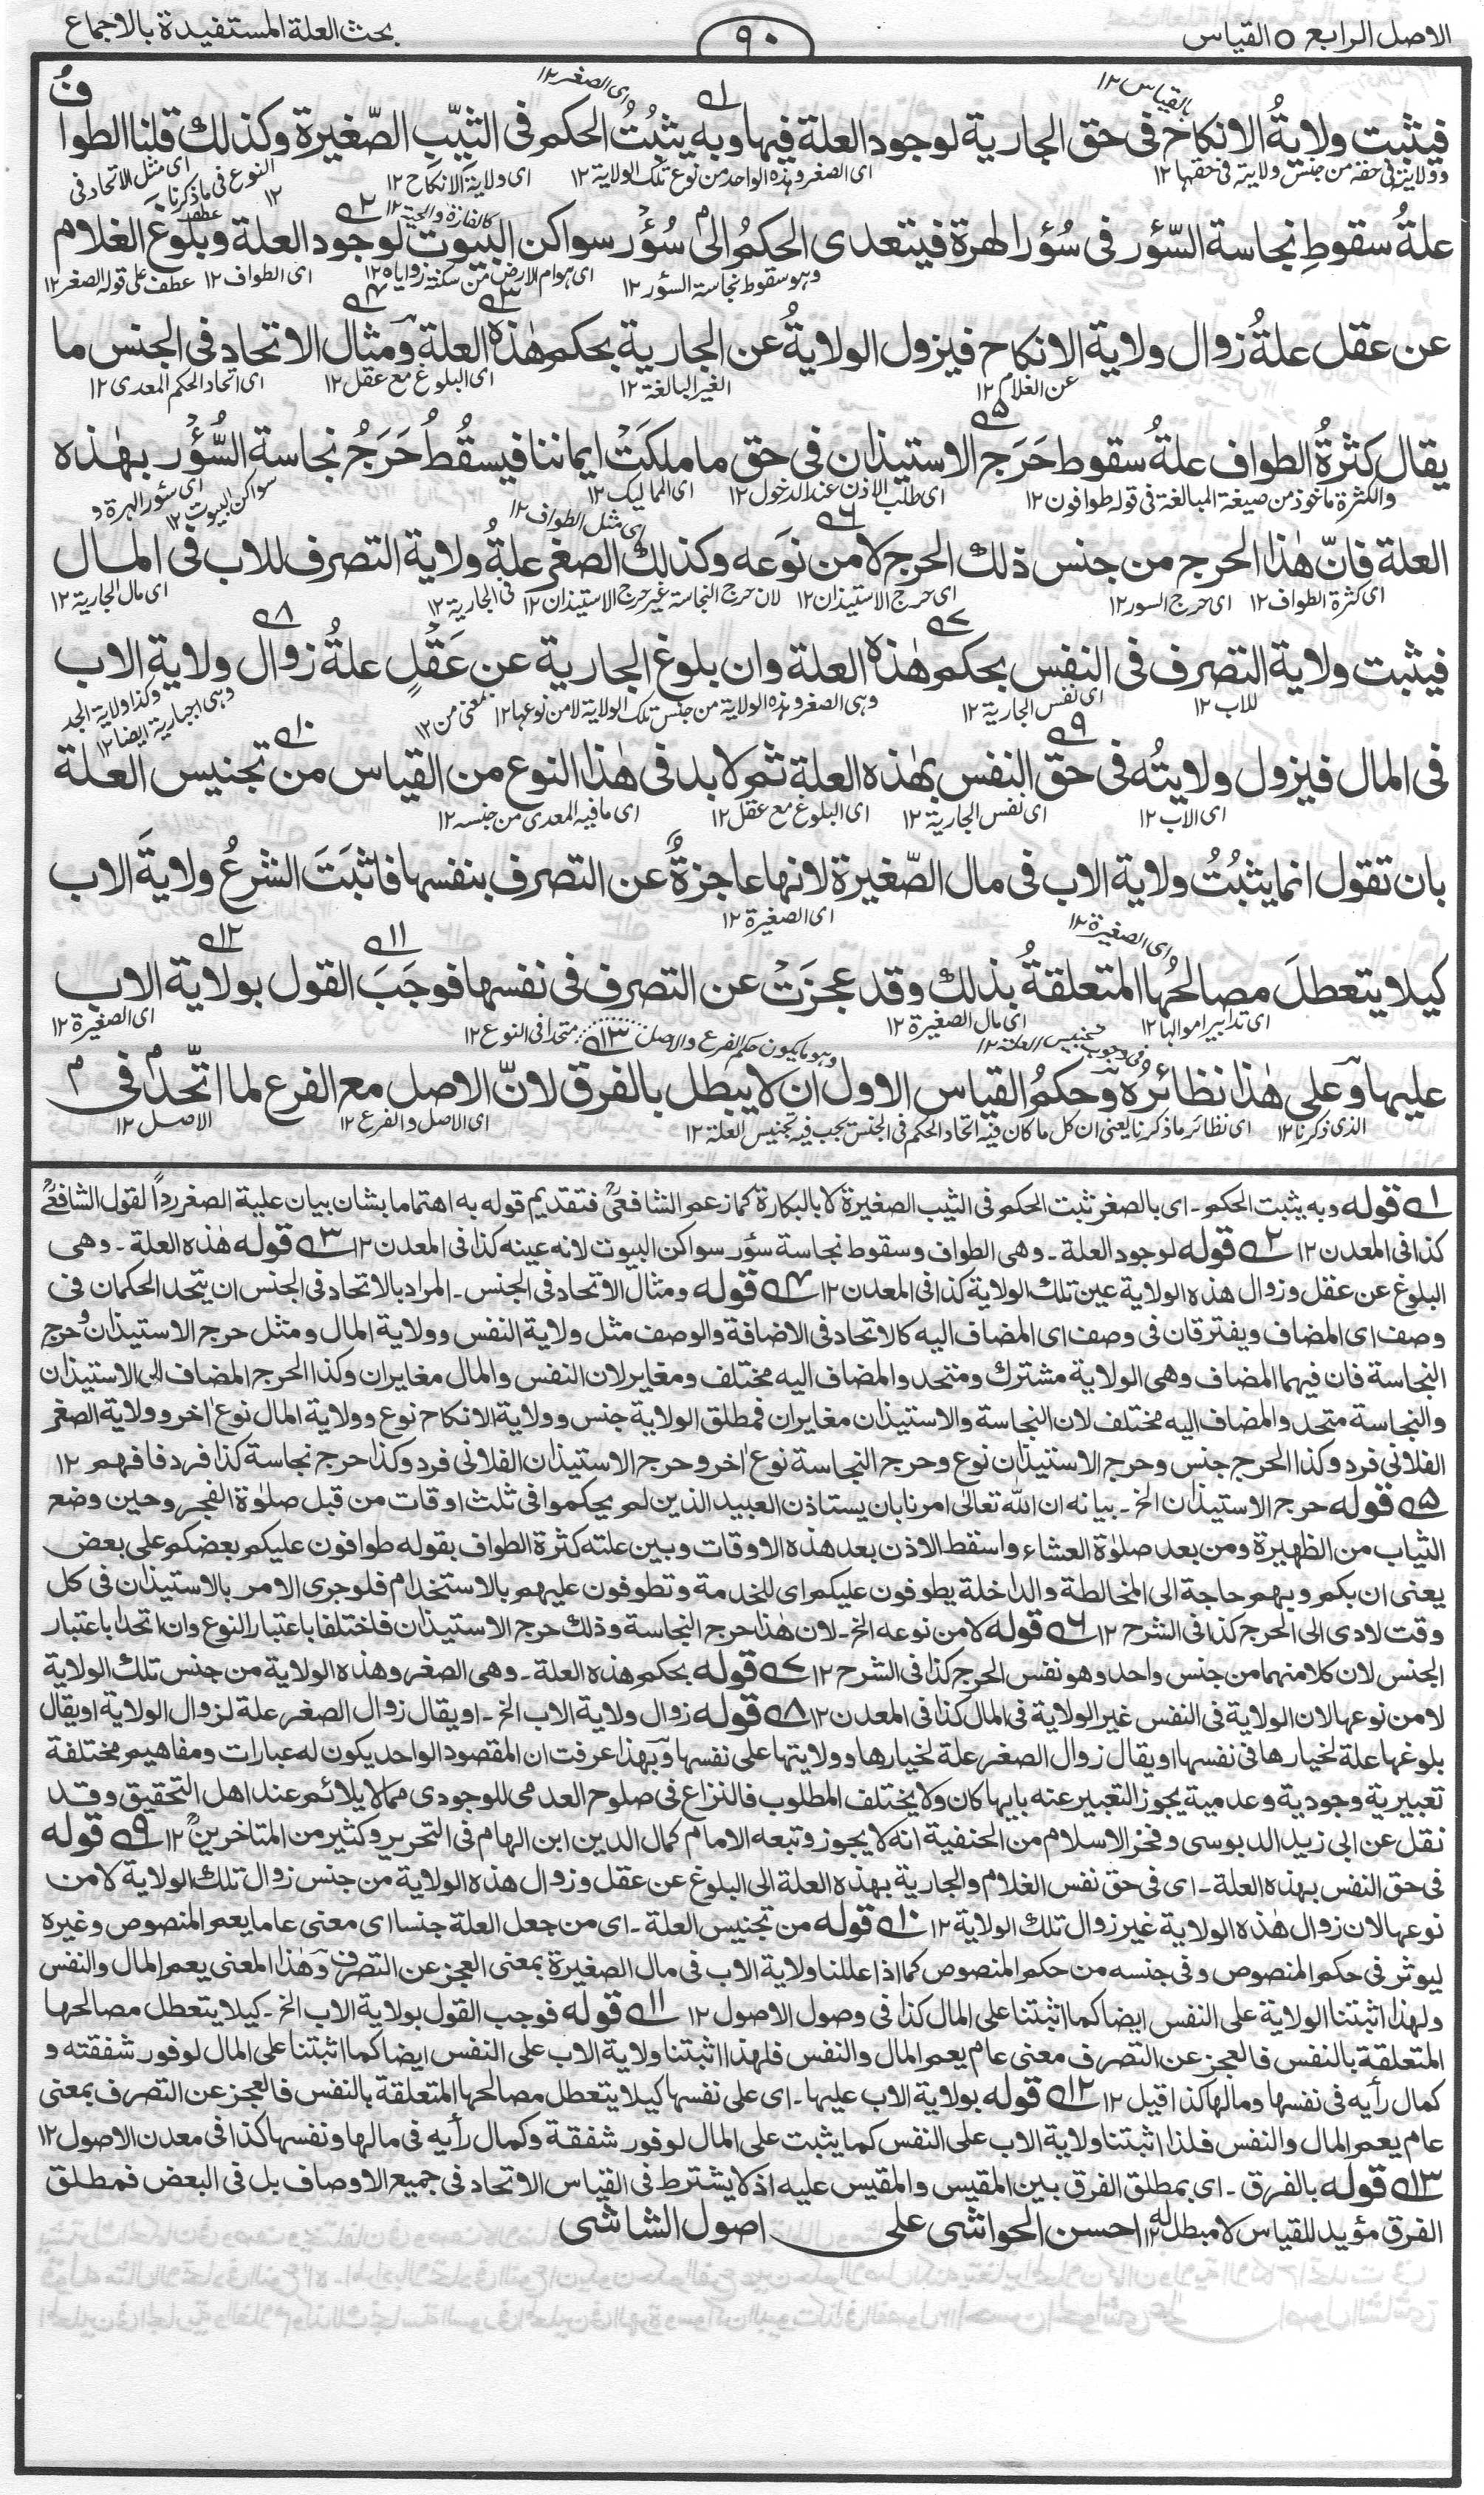 الاصل الرابع ○ القياس
٩٠
بحث العلة المستفيدة بالاجماع
بالقياس ١٢
اى الصغر ١٢
فيثبت ولايةُ الانكاح فى حق الجارية لوجود العلة فيها وبه يثبُتُ الحكم فى الثيّب الصّغيرة وكذلك قلنا الطوافُ
وولاية فى حقه من جنس ولايته فى حقها ١٢
اى الصغر وهذه الواحد من نوع تلك الولاية ١٢
اى ولاية الانكاح ١٢
اى مثل الاتحاد فى النوع فى ما ذكرنا ١٢
كالفارة والحية ١٢
علةُ سقوطِ نجاسة السّؤر فى سُؤر الهرة فيتعدى الحكمُ الى سُؤر سواكن البيوت لوجود العلة وبلوغ الغلام
وهو سقوط نجاسة السؤر ١٢
اى هوام الارض من سكنته زواياه ١٢
اى الطواف ١٢
عطف على قوله الصغر ١٢
عن عقل علةُ زوال ولاية الانكاح فيزول الولايةُ عن الجارية بحكم هٰذه العلة ومثال الاتحاد فى الجنس ما
عن الغلام ١٢
الغير البالغة ١٢
اى البلوغ مع عقل ١٢
اى اتحاد الحكم المعدى ١٢
يقال كثرةُ الطواف علةُ سقوط حَرَج الاستيذان فى حق ما ملكَتْ ايماننا فيسقُطُ حَرَجُ نجاسة السُّؤر بهٰذه
والكثرة ماخوذ من صيغة المبالغة فى قوله طوافون ١٢
اى طلب الاذن عند الدخول ١٢
اى المماليك ١٢
اى سؤر الهرة وسواكن البيوت ١٢
اى مثل الطواف ١٢
العلة فانّ هٰذا الحرج من جنس ذلك الحرج لا من نوعه وكذلك الصغر علةُ ولاية التصرف للاب فى المال
اى كثرة الطواف ١٢
اى حرج السور ١٢
اى حرج الاستيذان ١٢
لان حرج النجاسة غير حرج الاستيذان ١٢
فى الجارية ١٢
اى مال الجارية ١٢
فيثبت ولاية التصرف فى النفس بحكم هٰذه العلة وان بلوغ الجارية عن عَقْلٍ علةُ زوال ولاية الاب
للاب ١٢
اى نفس الجارية ١٢
وهى الصغر وهذه الولاية من جنس تلك الولاية لا من نوعها ١٢
بمعنى من ١٢
وكذا ولاية الجد وهى اجبارية ايضا ١٢
فى المال فيزول ولايتُه فى حق النفس بهٰذه العلة ثم لابد فى هٰذا النوع من القياس من تجنيس العلة
اى الاب ١٢
اى نفس الجارية ١٢
اى البلوغ مع عقل ١٢
اى ما فيه المعدى من جنسه ١٢
بان تقول انما يثبُتُ ولاية الاب فى مال الصّغيرة لانها عاجزةٌ عن التصرف بنفسها فاثبَتَ الشرعُ ولايةَ الاب
اى الصغيرة ١٢
اى الصغيرة ١٢
كيلا يتعطلَ مصالحُها المتعلقةُ بذلك وقد عجزَتْ عن التصرف فى نفسها فوجَبَ القول بولاية الاب
اى تدابير اموالها ١٢
اى مال الصغيرة ١٢
اى الصغيرة ١٢
فى وجوب تجنيس العلة ١٢
وهو ما يكون حكم الفرع والاصل متحدا فى النوع ١٢
عليها وعلى هٰذا نظائرُه وحكمُ القياس الاول ان لا يبطل بالفرق لانّ الاصل مع الفرع لما اتّحد فى
الذى ذكرنا ١٢
اى نظائر ما ذكرنا يعنى ان كل ما كان فيه اتحاد الحكم فى الجنس يجب فيه تجنيس العلة ١٢
اى الاصل والفرع ١٢
الاصل ١٢
١ قوله وبه يثبت الحكم ـ اى بالصغر ثبت الحكم فى الثيب الصغيرة لا بالبكارة كما زعم الشافعىؒ فتقديم قوله به اهتماما بشان بيان علية الصغر رداً لقول الشافعىؒ
كذا فى المعدن ١٢ ٢ قوله لوجود العلة ـ وهى الطواف وسقوط نجاسة سؤر سواكن البيوت لانه عينه كذا فى المعدن ١٢ ٣ قوله هٰذه العلة ـ وهى
البلوغ عن عقل وزوال هذه الولاية عين تلك الولاية كذا فى المعدن ١٢ ٤ قوله ومثال الاتحاد فى الجنس ـ المراد بالاتحاد فى الجنس ان يتحد الحكمان فى
وصف اى المضاف ويفترقان فى وصف اى المضاف اليه كالاتحاد فى الاضافة والوصف مثل ولاية النفس وولاية المال ومثل حرج الاستيذان وحرج
النجاسة فان فيهما المضاف وهى الولاية مشترك ومتحد والمضاف اليه مختلف ومغاير لان النفس والمال مغايران وكذا الحرج المضاف الى الاستيذان
والنجاسة متحد والمضاف اليه مختلف لان النجاسة والاستيذان مغايران فمطلق الولاية جنس وولاية الانكاح نوع وولاية المال نوع اٰخر وولاية الصغر
الفلانى فرد وكذا الحرج جنس وحرج الاستيذان نوع وحرج النجاسة نوع اٰخر وحرج الاستيذان الفلانى فرد وكذا حرج نجاسة كذا فرد فافهم ١٢
٥ قوله حرج الاستيذان الخ ـ بيانه ان الله تعالىٰ امرنا بان يستاذن العبيد الذين لم يحكموا فى ثلث اوقات من قبل صلوٰة الفجر وحين وضع
الثياب من الظهيرة ومن بعد صلوٰة العشاء واسقط الاذن بعد هذه الاوقات وبين علته كثرة الطواف بقوله طوافون عليكم بعضكم على بعض
يعنى ان بكم وبهم حاجة الى المخالطة والداخلة يطوفون عليكم اى للخدمة وتطوفون عليهم بالاستخدام فلو جرى الامر بالاستيذان فى كل
وقت لادى الى الحرج كذا فى الشرح ١٢ ٦ قوله لا من نوعه الخ ـ لان هٰذا حرج النجاسة وذلك حرج الاستيذان فاختلفا باعتبار النوع وان اتحدا باعتبار
الجنس لان كلا منهما من جنس واحد وهو نفس الحرج كذا فى الشرح ١٢ ٧ قوله بحكم هذه العلة ـ وهى الصغر وهذه الولاية من جنس تلك الولاية
لا من نوعها لان الولاية فى النفس غير الولاية فى المال كذا فى المعدن ١٢ ٨ قوله زوال ولاية الاب الخ ـ او يقال زوال الصغر علة لزوال الولاية او يقال
بلوغها علة لخيارها فى نفسها او يقال زوال الصغر علة لخيارها وولايتها على نفسها وبهٰذا عرفت ان المقصود الواحد يكون له عبارات ومفاهيم مختلفة
تعبيرية وجودية وعدمية يجوز التعبير عنه بايها كان ولا يختلف المطلوب فالنزاع فى صلوح العدمى للوجودى مما لا يلائم عند اهل التحقيق وقد
نقل عن ابى زيد الدبوسى وفخر الاسلام من الحنفية انه لا يجوز وتبعه الامام كمال الدين ابن الهمام فى التحرير وكثير من المتاخرينؒ ١٢ ٩ قوله
فى حق النفس بهذه العلة ـ اى فى حق نفس الغلام والجارية بهذه العلة الى البلوغ عن عقل وزوال هذه الولاية من جنس زوال تلك الولاية لا من
نوعها لان زوال هٰذه الولاية غير زوال تلك الولاية ١٢ ١٠ قوله من تجنيس العلة ـ اى من جعل العلة جنسا اى معنى عاما يعم المنصوص وغيره
ليوثر فى حكم المنصوص وفى جنسه من حكم المنصوص كما اذا عللنا ولاية الاب فى مال الصغيرة بمعنى العجز عن التصرف وهٰذا المعنى يعم المال والنفس
ولهذا اثبتنا الولاية على النفس ايضا كما اثبتنا على المال كذا فى وصول الاصول ١٢ ١١ قوله فوجب القول بولاية الاب الخ ـ كيلا يتعطل مصالحها
المتعلقة بالنفس فالعجز عن التصرف معنى عام يعم المال والنفس فلهذا اثبتنا ولاية الاب على النفس ايضا كما اثبتنا على المال لوفور شفقته و
كمال رأيه فى نفسها ومالها كذا قيل ١٢ ١٢ قوله بولاية الاب عليها ـ اى على نفسها كيلا يتعطل مصالحها المتعلقة بالنفس فالعجز عن التصرف بمعنى
عام يعم المال والنفس فلذا اثبتنا ولاية الاب على النفس كما يثبت على المال لوفور شفقة وكمال رأيه فى مالها ونفسها كذا فى معدن الاصول ١٢
١٣ قوله بالفرق ـ اى بمطلق الفرق بين المقيس والمقيس عليه اذ لا يشترط فى القياس الاتحاد فى جميع الاوصاف بل فى البعض فمطلق
الفرق مؤيد للقياس لا مبطل له ١٢ احسن الحواشى على اصول الشاشى